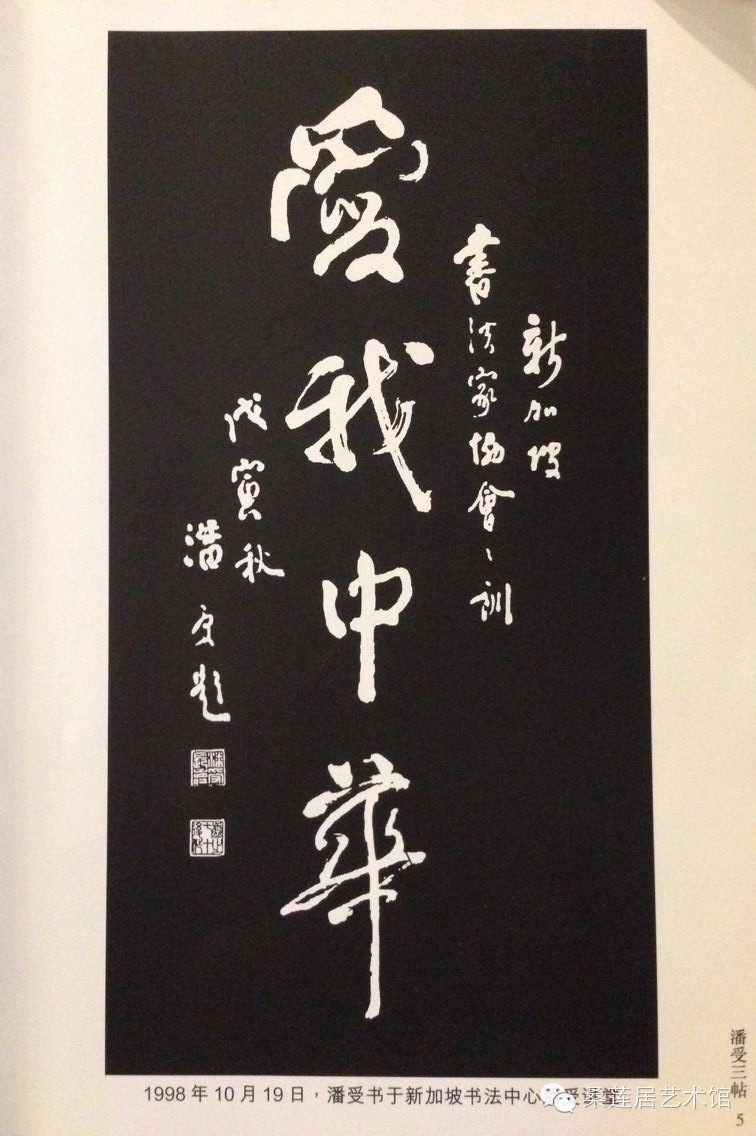 新加坡
書法家協會〻訓
愛我中華
戊寅秋
潘受題
1998年10月19日，潘受书于新加坡书法中心
桑莲居艺术馆
潘受三帖
5